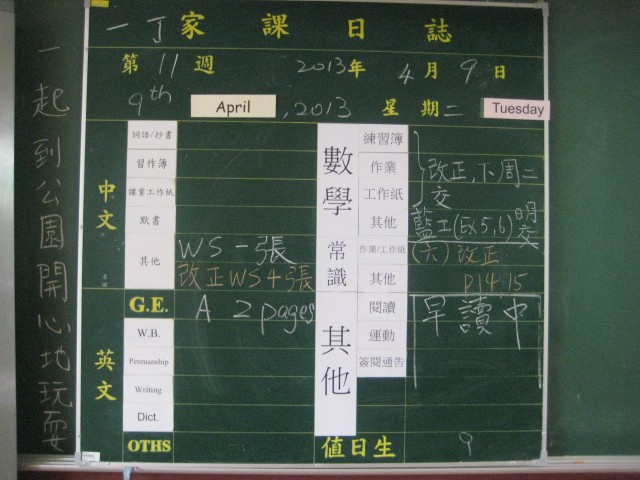 一起到公園開心地玩耍
一丁家課日誌
第11週 2013年4月9日
9th April, 2013 星期二 Tuesday
中文
詞語/抄書
習作簿
課業工作紙
默書
其他 WS一張
改正WS4張
G.E. A 2 pages
英文
W.B.
Penmanship
Writing
Dict.
OTHS
數學
練習簿
作業 改正,下周二
工作紙 交
其他 藍工(Ex 5,6)明交
常識
作業/工作紙 (六)改正
其他 P14-15
其他
閱讀 早讀中
運動
簽閱通告
值日生 9